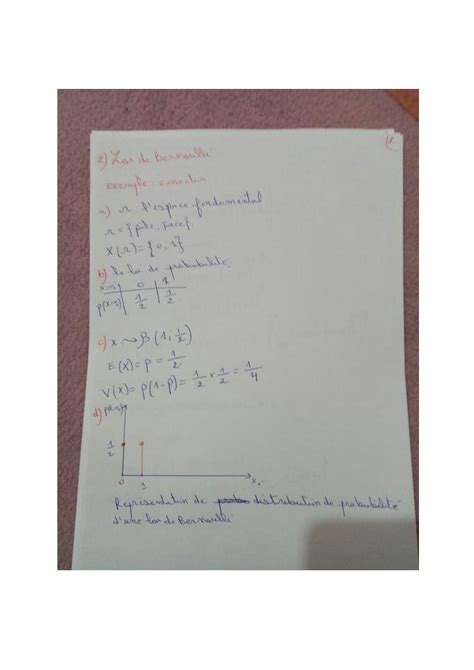 2) Loi de Bernoulli
exemple :
a) Ω l'espace fondamental
Ω = {pile, face}
X(Ω) = {0, 1}
b) la loi de probabilité :
0 1
1/2 1/2
c) X ⤳ β(1; 1/2)
E(X) = p = 1/2
V(X) = p(1-p) = 1/2 × 1/2 = 1/4
d)
1/2
0 1
Representation de distribution de probabilité
d'une loi de Bernoulli